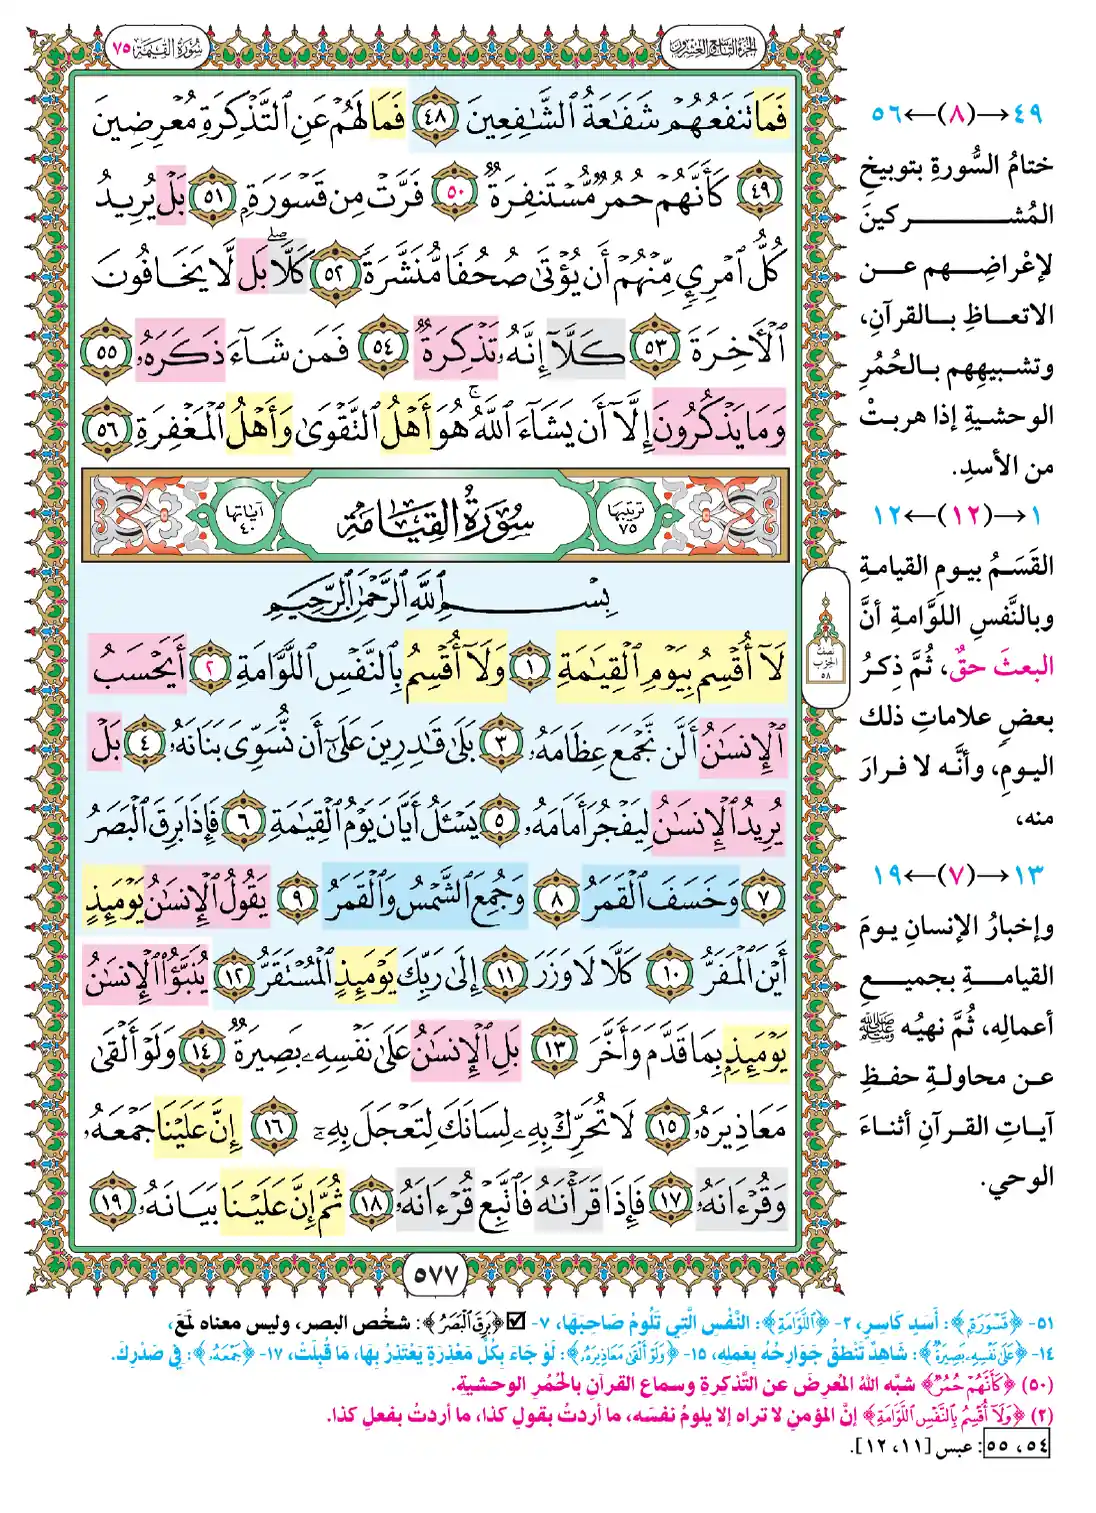 الجزء التاسع والعشرون
سورة القيامة ٧٥
فَمَا تَنفَعُهُمْ شَفَٰعَةُ ٱلشَّٰفِعِينَ ٤٨ فَمَا لَهُمْ عَنِ ٱلتَّذْكِرَةِ مُعْرِضِينَ
٤٩ كَأَنَّهُمْ حُمُرٌ مُّسْتَنفِرَةٌ ٥٠ فَرَّتْ مِن قَسْوَرَةٍۭ ٥١ بَلْ يُرِيدُ
كُلُّ ٱمْرِئٍ مِّنْهُمْ أَن يُؤْتَىٰ صُحُفًا مُّنَشَّرَةً ٥٢ كَلَّاۖ بَل لَّا يَخَافُونَ
ٱلْأَخِرَةَ ٥٣ كَلَّآ إِنَّهُۥ تَذْكِرَةٌ ٥٤ فَمَن شَآءَ ذَكَرَهُۥ ٥٥
وَمَا يَذْكُرُونَ إِلَّآ أَن يَشَآءَ ٱللَّهُۚ هُوَ أَهْلُ ٱلتَّقْوَىٰ وَأَهْلُ ٱلْمَغْفِرَةِ ٥٦
ترتيبها ٧٥
سُورَةُ القِيَامَةِ
آياتها ٤٠
بِسْمِ ٱللَّهِ ٱلرَّحْمَٰنِ ٱلرَّحِيمِ
لَآ أُقْسِمُ بِيَوْمِ ٱلْقِيَٰمَةِ ١ وَلَآ أُقْسِمُ بِٱلنَّفْسِ ٱللَّوَّامَةِ ٢ أَيَحْسَبُ
ٱلْإِنسَٰنُ أَلَّن نَّجْمَعَ عِظَامَهُۥ ٣ بَلَىٰ قَٰدِرِينَ عَلَىٰٓ أَن نُّسَوِّىَ بَنَانَهُۥ ٤ بَلْ
يُرِيدُ ٱلْإِنسَٰنُ لِيَفْجُرَ أَمَامَهُۥ ٥ يَسْـَٔلُ أَيَّانَ يَوْمُ ٱلْقِيَٰمَةِ ٦ فَإِذَا بَرِقَ ٱلْبَصَرُ
٧ وَخَسَفَ ٱلْقَمَرُ ٨ وَجُمِعَ ٱلشَّمْسُ وَٱلْقَمَرُ ٩ يَقُولُ ٱلْإِنسَٰنُ يَوْمَئِذٍ
أَيْنَ ٱلْمَفَرُّ ١٠ كَلَّا لَا وَزَرَ ١١ إِلَىٰ رَبِّكَ يَوْمَئِذٍ ٱلْمُسْتَقَرُّ ١٢ يُنَبَّؤُا۟ ٱلْإِنسَٰنُ
يَوْمَئِذٍۭ بِمَا قَدَّمَ وَأَخَّرَ ١٣ بَلِ ٱلْإِنسَٰنُ عَلَىٰ نَفْسِهِۦ بَصِيرَةٌ ١٤ وَلَوْ أَلْقَىٰ
مَعَاذِيرَهُۥ ١٥ لَا تُحَرِّكْ بِهِۦ لِسَانَكَ لِتَعْجَلَ بِهِۦٓ ١٦ إِنَّ عَلَيْنَا جَمْعَهُۥ
وَقُرْءَانَهُۥ ١٧ فَإِذَا قَرَأْنَٰهُ فَٱتَّبِعْ قُرْءَانَهُۥ ١٨ ثُمَّ إِنَّ عَلَيْنَا بَيَانَهُۥ ١٩
٥٧٧
نصف
الحزب
٥٨
٤٩→(٨)←٥٦
ختامُ السُّورةِ بتوبيخِ
المُشركينَ
لإعْراضِهم عن
الاتعاظِ بالقرآنِ،
وتشبيهِهم بالحُمُرِ
الوحشيةِ إذا هربتْ
من الأسدِ.
١→(١٢)←١٢
القَسَمُ بيومِ القيامةِ
وبالنَّفسِ اللوَّامةِ أنَّ
البعثَ حقٌّ، ثُمَّ ذِكرُ
بعضِ علاماتِ ذلك
اليومِ، وأنَّه لا فرارَ
منه،
١٣→(٧)←١٩
وإخبارُ الإنسانِ يومَ
القيامةِ بجميعِ
أعمالِه، ثُمَّ نهيُه ﷺ
عن محاولةِ حفظِ
آياتِ القرآنِ أثناءَ
الوحي.
٥١- ﴿قَسْوَرَةٍ﴾: أَسَدٍ كَاسِرٍ، ٢- ﴿ٱللَّوَّامَةِ﴾: النَّفْسِ الَّتِي تَلُومُ صَاحِبَهَا، ٧- ☑ ﴿بَرِقَ ٱلْبَصَرُ﴾: شخُص البصر، وليس معناه لمعَ،
١٤- ﴿عَلَىٰ نَفْسِهِۦ بَصِيرَةٌ﴾: شَاهِدٌ تَنْطِقُ جَوَارِحُهُ بِعَمَلِهِ، ١٥- ﴿وَلَوْ أَلْقَىٰ مَعَاذِيرَهُۥ﴾: لَوْ جَاءَ بِكُلِّ مَعْذِرَةٍ يَعْتَذِرُ بِهَا، مَا قُبِلَتْ، ١٧- ﴿جَمْعَهُۥ﴾: فِي صَدْرِكَ.
(٥٠) ﴿كَأَنَّهُمْ حُمُرٌ﴾ شبَّه اللهُ المُعرِضَ عن التَّذكِرةِ وسماع القرآنِ بالحُمُرِ الوحشيةِ.
(٢) ﴿وَلَآ أُقْسِمُ بِٱلنَّفْسِ ٱللَّوَّامَةِ﴾ إنَّ المؤمنِ لا تراه إلا يلومُ نفسَه، ما أردتُ بقولِ كذا، ما أردتُ بفعلِ كذا.
٥٤، ٥٥: عبس [١١، ١٢].